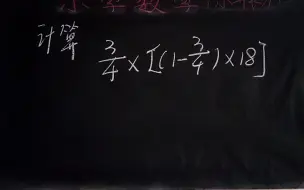 小学数学
计算 3/4×[(1-3/4)×18]